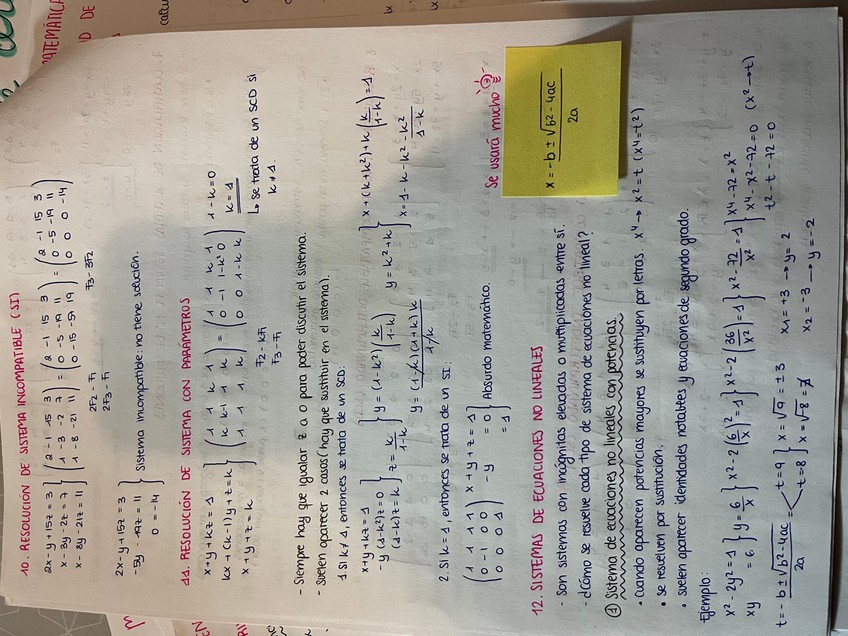 10. RESOLUCIÓN DE SISTEMA INCOMPATIBLE (SI)
2x - y + 15z = 3
x - 3y - 2z = 7
x - 8y - 21z = 11
(2 -1 15 3
1 -3 -2 7
1 -8 -21 11) = (2 -1 15 3
0 -5 -19 11
0 -15 -57 19) = (2 -1 15 3
0 -5 -19 11
0 0 0 -14)
2F2 - F1
2F3 - F1
F3 - 3F2
2x - y + 15z = 3
-5y - 19z = 11
0 = -14
} Sistema incompatible: no tiene solución.
11. RESOLUCIÓN DE SISTEMA CON PARÁMETROS
x + y + kz = 1
kx + (k-1)y + z = k
x + y + z = k
(1 1 k 1
k k-1 1 k
1 1 1 k) = (1 1 k 1
0 -1 1-k² 0
0 0 1-k k)
F2 - kF1
F3 - F1
1 - k = 0
k = 1
↳ Se trata de un SCD si
k ≠ 1.
- Siempre hay que igualar z a 0 para poder discutir el sistema.
- Suelen aparecer 2 casos (hay que sustituir en el sistema).
1. Si k ≠ 1, entonces se trata de un SCD:
x + y + kz = 1
-y (1-k²)z = 0
(1-k)z = k
} z = k/1-k
} y = (1-k²)(k/1-k)
y = (1-k)(1+k)k/1-k
} y = k² + k
} x + (k+k²) + k(k/1-k) = 1
x = 1 - k - k² - k²/1-k
2. Si k = 1, entonces se trata de un SI:
(1 1 1 1
0 -1 0 0
0 0 0 1)
x + y + z = 1
-y = 0
= 1
} Absurdo matemático.
12. SISTEMAS DE ECUACIONES NO LINEALES
Se usará mucho
x = -b ± √b² - 4ac
2a
- Son sistemas con incógnitas elevadas o multiplicadas entre sí.
- ¿Cómo se resuelve cada tipo de sistema de ecuaciones no lineal?
① Sistema de ecuaciones no lineales con potencias.
• Cuando aparecen potencias mayores se sustituyen por letras. x⁴ → x² = t (x⁴ = t²)
• Se resuelven por sustitución.
• Suelen aparecer identidades notables y ecuaciones de segundo grado.
Ejemplo:
x² - 2y² = 1
xy = 6
} y = 6/x } x² - 2(6/x)² = 1 } x² - 2(36/x²) = 1 } x² - 72/x² = 1 } x⁴ - 72 = x²
x⁴ - x² - 72 = 0 (x² → t)
t² - t - 72 = 0
t = -b ± √b² - 4ac
2a
= t = 9 } x = √9 = ± 3
t = -8 } x = √-8 = ∄
x1 = +3 → y = 2
x2 = -3 → y = -2